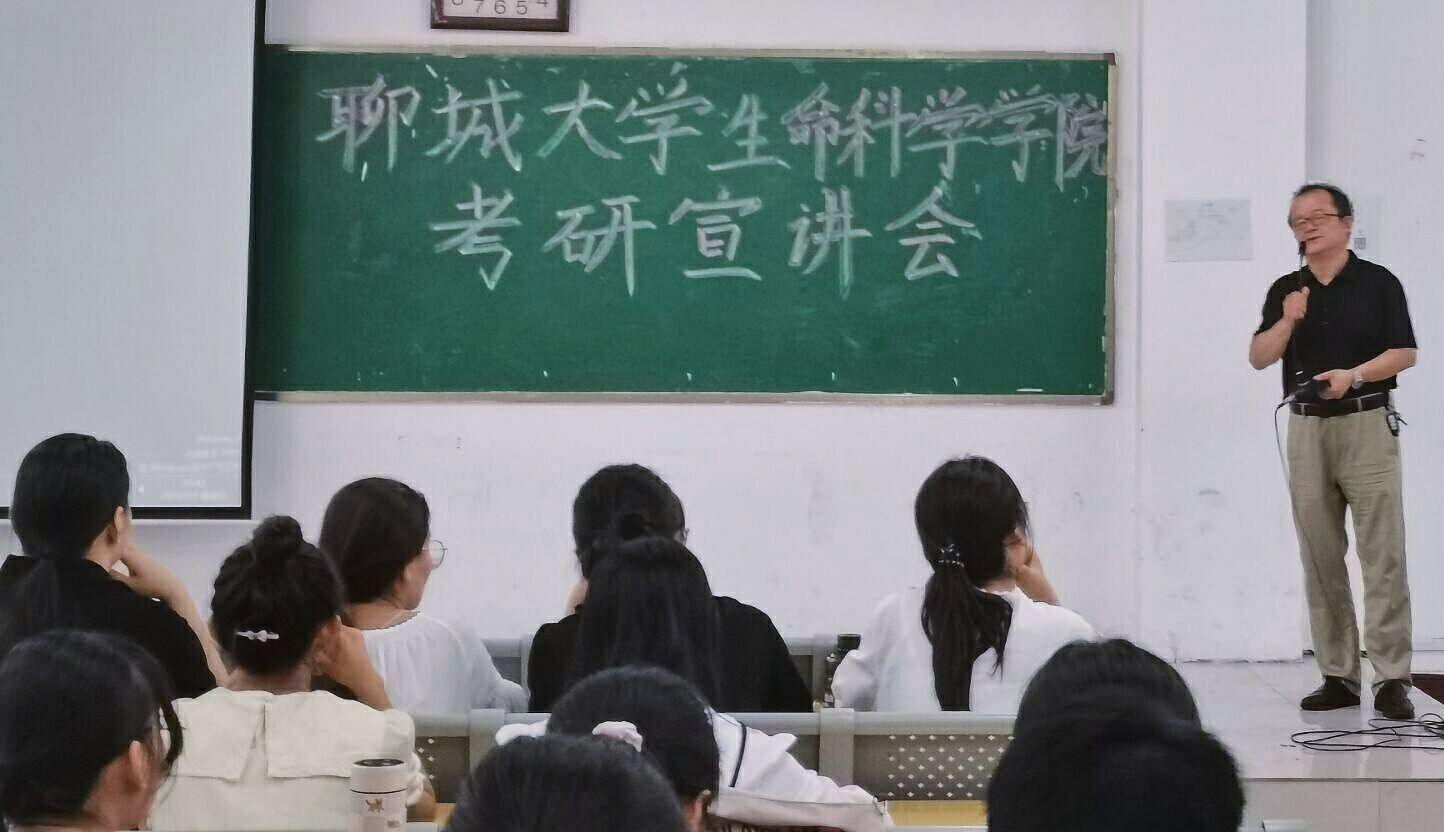 7654
聊城大学生命科学学院
考研宣讲会